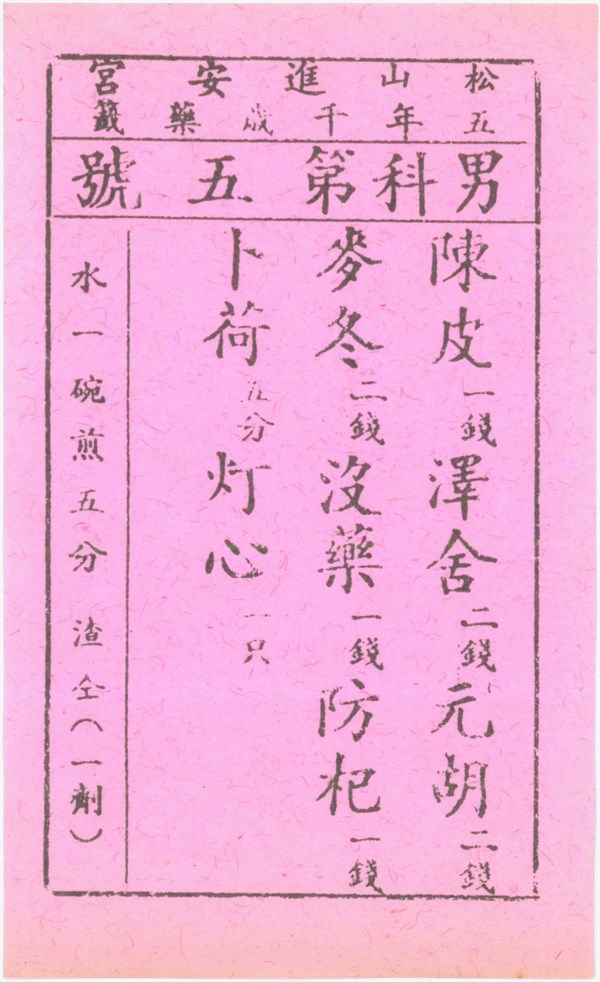 松山進安宮
五年千歲藥籤
男科第五號
陳皮一錢澤舍二錢元胡二錢
麥冬二錢沒藥一錢防杞一錢
卜荷五分灯心一只
水一碗煎五分 渣仝(一劑)